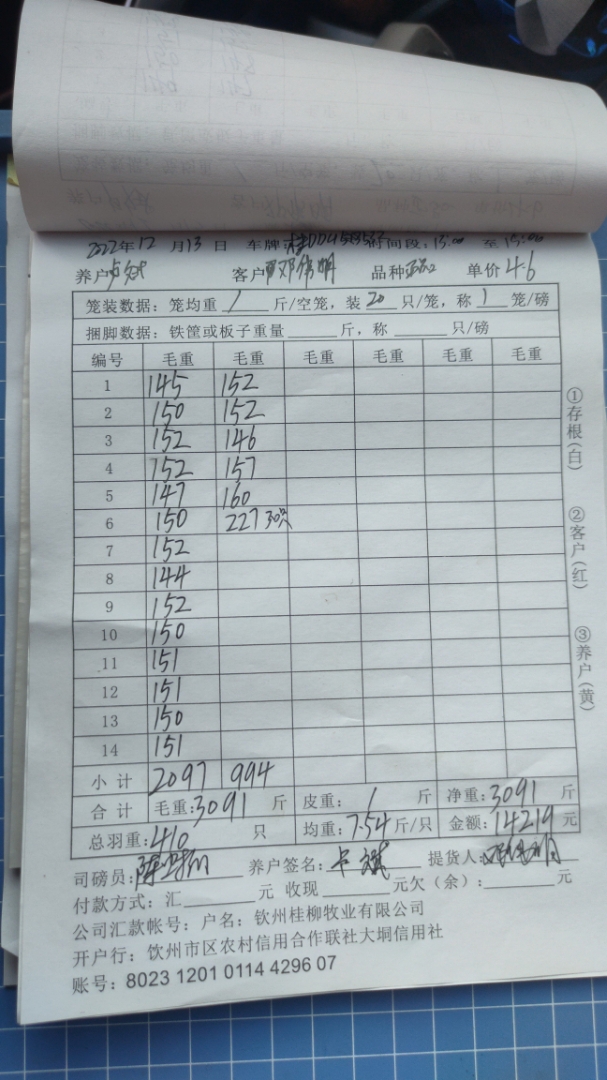 2022年12月13日 车牌 时间段：15:00 至 15:00
养户 客户 邓伟明 品种 单价 4.6
笼装数据：笼均重 / 斤/空笼，装 20 只/笼，称 1 笼/磅
捆脚数据：铁筐或板子重量 斤，称 只/磅
编号 毛重 毛重 毛重 毛重 毛重 毛重
1 145 152
2 150 152
3 152 146
4 152 157
5 147 160
6 150 227 30只
7 152
8 144
9 152
10 150
11 151
12 151
13 150
14 151
小计 2097 994
合计 毛重：3091 斤 皮重： / 斤 净重：3091 斤
总羽重：410 只 均重：7.54 斤/只 金额：14219 元
司磅员： 养户签名： 提货人：
付款方式：汇 元 收现 元欠（余）： 元
公司汇款帐号：户名：钦州桂柳牧业有限公司
开户行：钦州市区农村信用合作联社大垌信用社
账号：8023 1201 0114 4296 07
①存根（白）
②客户（红）
③养户（黄）